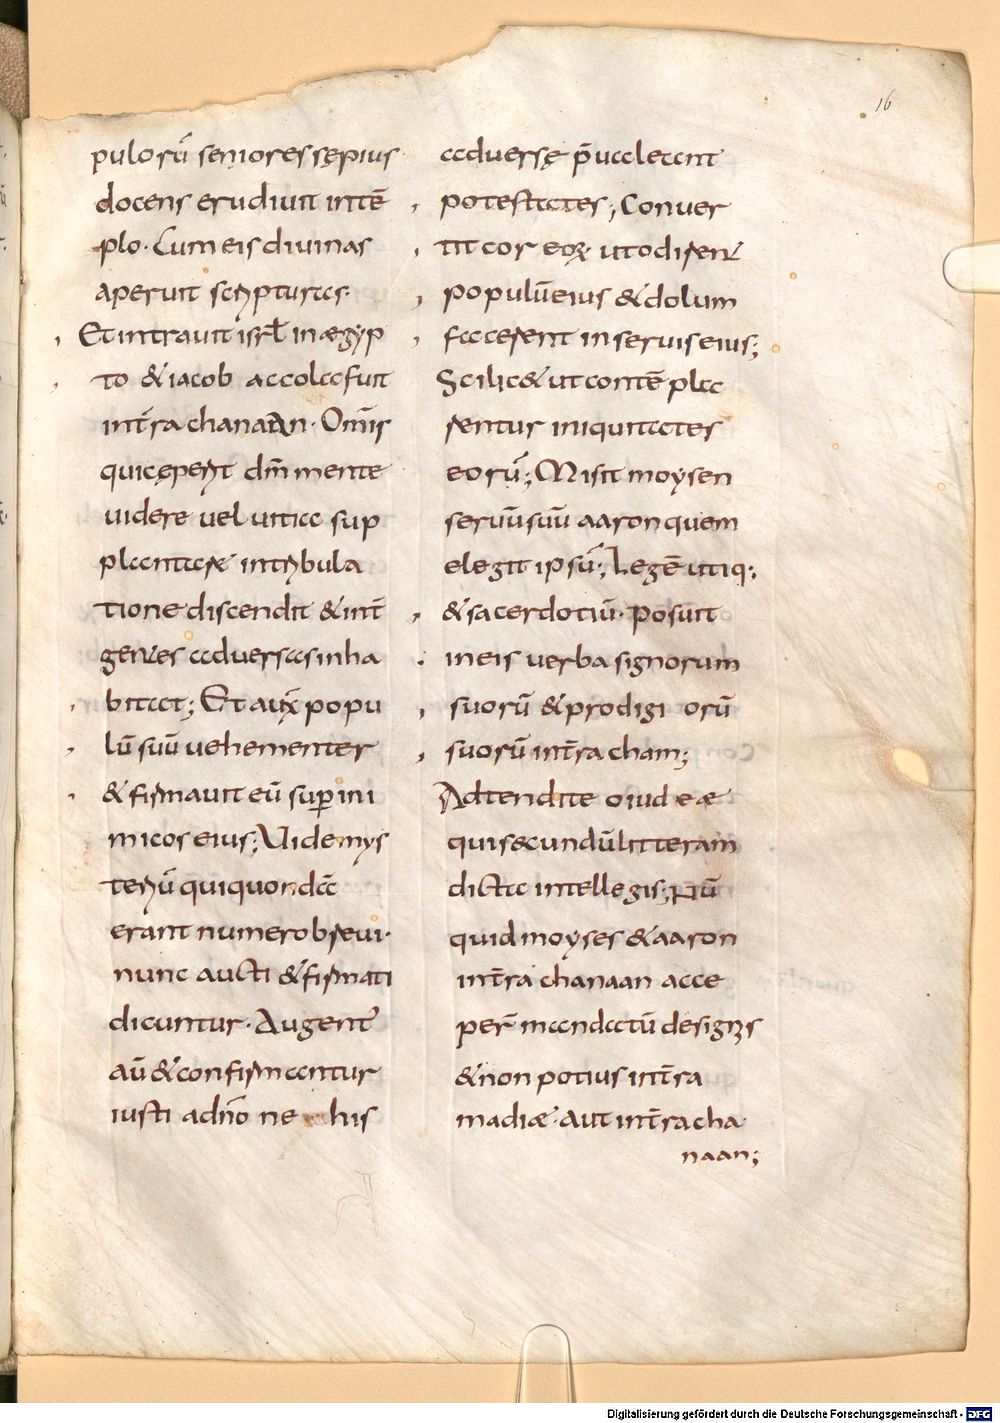 16
pulorū seniores sępius
docens erudiuit intē
plo. Cum eis diuinas
aperuit scripturas.
Et intrauit isrł in ægyp
to & iacob accola fuit
in tr̄a chanaan. Om̄is
qui cęperit dm̄ mente
uidere uel uitia sup
plantare in tribula
tione discendit & int̄
gentes aduersas inha
bitat; Et aux̄ popu
lū suū uehementer
& firmauit eū sup ini
micos eius; Uide mys
teriū qui quondā
erant numero breui.
nunc aucti & firmati
dicuntur. Augent̄
aū & confirmantur
iusti ad nō ne his
aduersę p̄ualeant
potestates; Conuer
tit cor eorꝝ ut odirent
populū eius & dolum
facerent in seruis eius;
Scilic& ut contē pla
rentur iniquitates
eorū; Misit moysen
seruū suū aaron quem
elegit ipsū; Legē utiq;
& sacerdotiū. Posuit
in eis uerba signorum
suorū & prodigi orū
suorū in tr̄a cham;
Adtendite o iudeæ
qui secundū litteram
dicta intellegis; Nū
quid moyses & aaron
in tr̄a chanaan acce
per̄ mandatū de signis
& non potius in tr̄a
madiæ. Aut in tr̄a cha
naan;
Digitalisierung gefördert durch die Deutsche Forschungsgemeinschaft - DFG